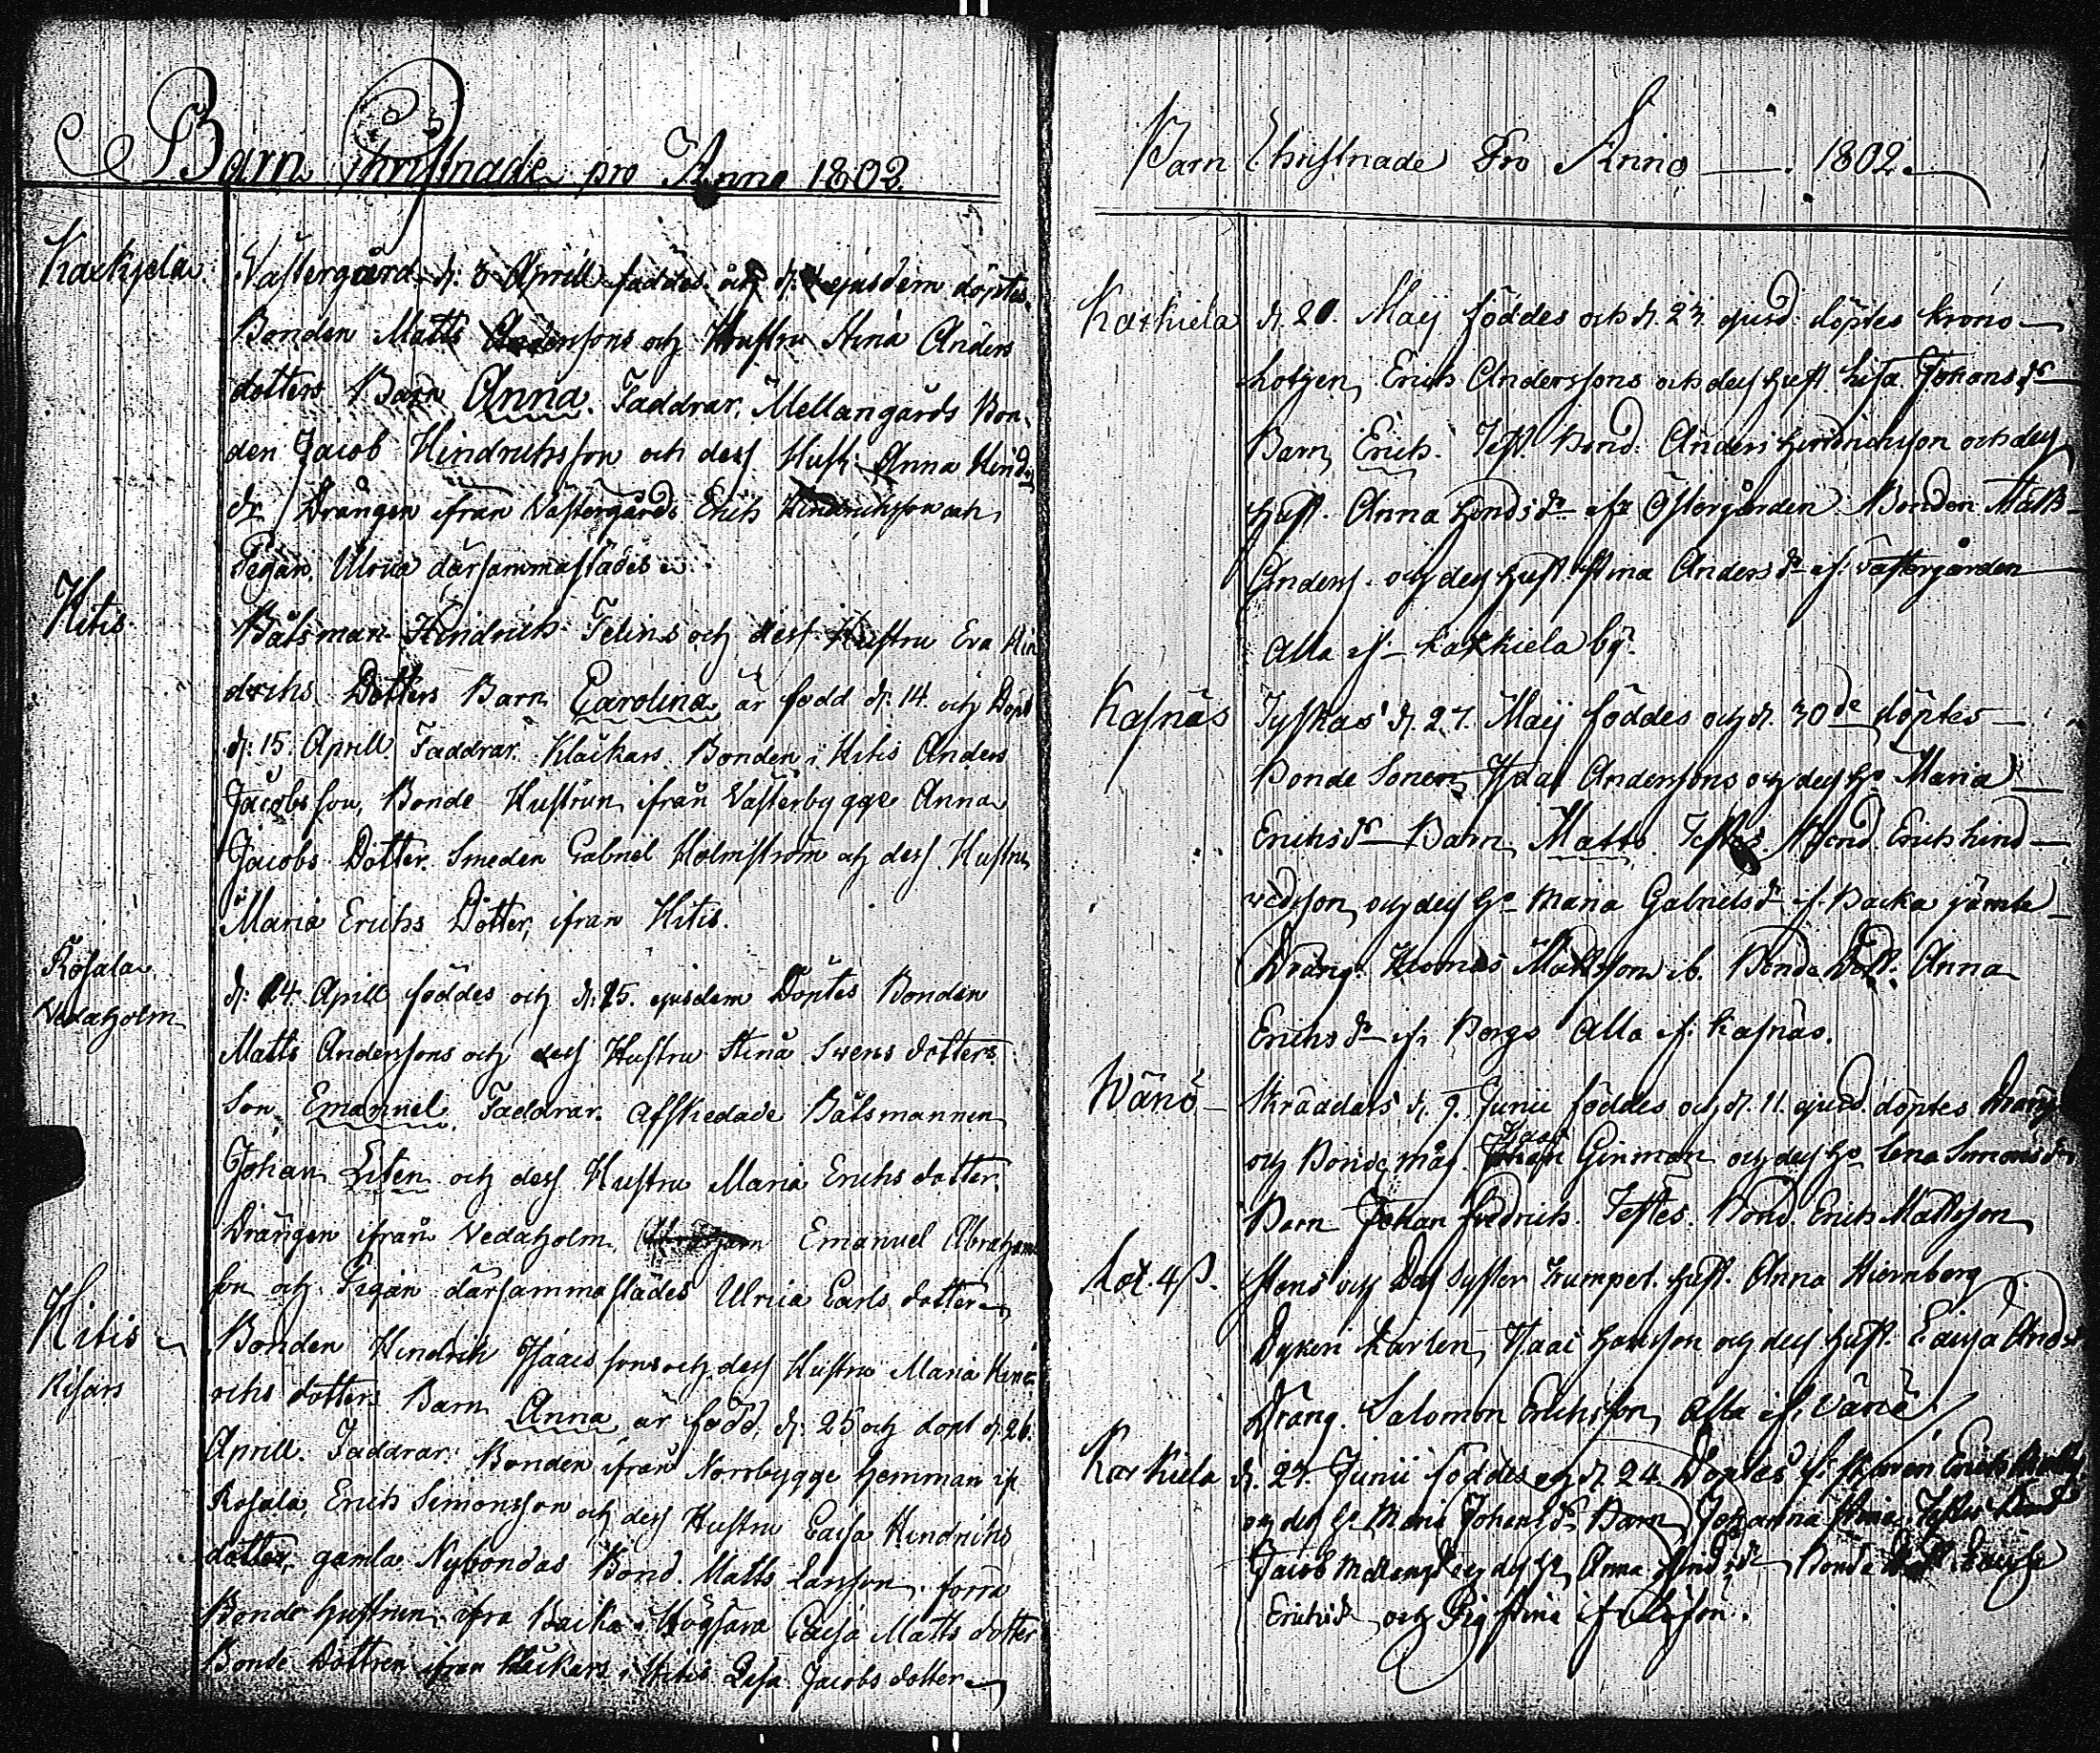 Barn Christnade pro Anno 1802
Karkjela. Västergård d: 3 Aprill föddes och d: ejusdem döptes
Bonden Matts Anderssons och Hustru Stina Anders
dotters Barn Anna. Faddrar, Mellangårds Bon-
den Jacob Hindrichsson och dess Hust: Anna Hind:
dr Drängen ifrån Västergårds Erich Hindrichsson och
Pigan Ulrica därsammastädes
Hitis. Båtsman Hindrich Felins och dess Hustru Eva Hin
drichs Dotters Barn Carolina är född d: 14. och Döpt
d: 15. Aprill. Faddrar. Kläckars Bonden i Hitis Anders
Jacobsson, Bonde Hustrun ifrån Västerbygge Anna
Jacobs Dotter. Smeden Gabriel Holmström och dess Hustru
Maria Erichs Dotter, ifrån Hitis.
Rosala d: 24. Aprill föddes och d: 25. ejusdem Döptes Bonden
Vedaholm Matts Anderssons och dess Hustru Stina Svens dotters
Son Emanuel. Faddrar. Afskedade Båtsmannen
Johan Liten och dess Hustru Maria Erichs dotter.
Drängen ifrån Vedaholm Emanuel Abrahams
son och Pigan därsammastädes Ulrica Carls dotter
Hitis Bonden Hindrik Isaacs sons och dess Hustru Maria Hind
richs dotters Barn Anna är född, d: 25 och döpt d: 26.
Aprill. Faddrar: Bonden ifrån Norrbygge hemman if
Rosala, Erich Simonsson och dess Hustru Caisa Hindrichs
dotter, gamla Nybondas Bond. Matts Larsson, förra
Bonde hustrun ifra Backa i Högsåra Caisa Matts dotter
Bonde Dottren ifrån Kläckars i Hitis Lisa Jacobs dotter
Barn Christnade Pro Anno 1802.
Karkiela d. 20. Maij föddes och d. 23. ejusd. döptes krono-
Erich Anderssons och dess hust Lisa Johans dr
Barn Erich. Test. Bond. Anders Hendrichsson och dess
Hust. Anna Hends dr ifr Östergården Bonden Matts
Anderss. och dess hust. Stina Anders dr if. Västergården
Alla if karkiela by.
Kasnäs Tyskas d. 27. Maij föddes och d. 30de döptes
Bonde Sonen Isaac Anderssons och dess Ho Maria
Erichs dr Barn Matts. Testes. Bond. Erich Hind-
richsson och dess Ho Maria Gabriels dr if. Backa jämte
Dräng. Thomas Mattsson ib. Bonde Dott. Anna
Erichs dr if. Borgs Alla if. Kasnäs.
Wänö Skräddars d. 9. Junii föddes och d. 11. ejusd. döptes Dräng
och Bonde måg. Isaac Ginman och dess Ho Lena Simons dr
Barn Johan Fredrich. Testes. Bond. Erich Mattsson
och Des syster Trumpet. hust. Anna Stiernberg
Dykeri Karlen, Isaac Hansson och dess hust. Caisa Anders
Dräng. Salomon Erichsson, alla if. Vänö.
Karkiela d. 23. Junii föddes och d. 24. Döptes
och dess Ho Maria Johans dr Barn Johanna Stina. Testes
Jacob och dess Ho Anna Hind dr Bonde
Erichs dr och Pig Stina if